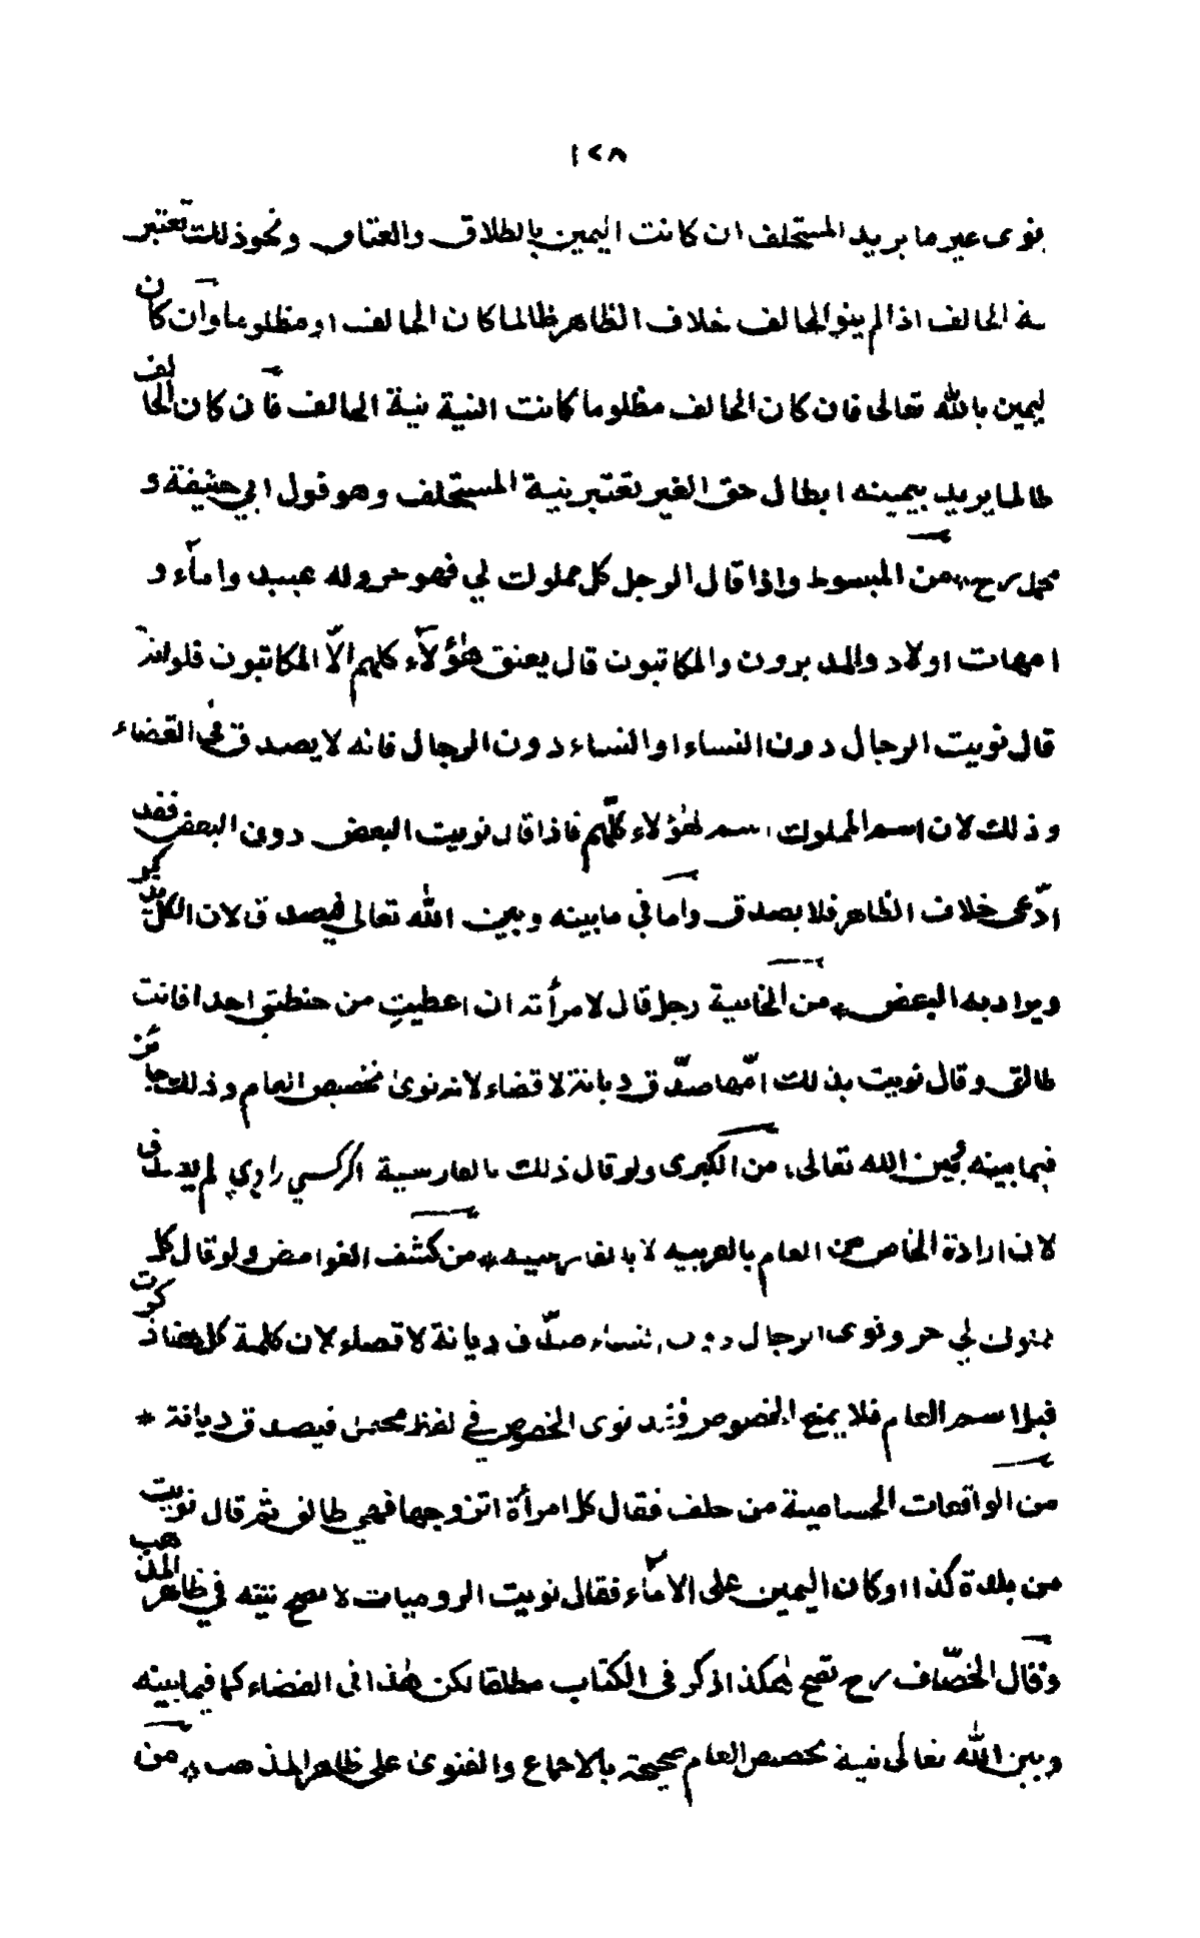 ١٢٨
ينوى غير ما يريد المستحلف ان كانت اليمين بالطلاق والعتاق ونحو ذلك تعتبر
نية الحالف اذا لم ينو الحالف خلاف الظاهر ظالما كان الحالف او مظلوما وان كان
ليمين بالله تعالى فان كان الحالف مظلوما كانت النية نية الحالف فان كان الحالف
ظالما يريد بيمينه ابطال حق الغير تعتبر نية المستحلف وهو قول ابي حنيفة و
محمد رح * من المبسوط واذا قال الرجل كل مملوك لي فهو حر وله عبيد واماء و
امهات اولاد والمدبرون والمكاتبون قال يعتق هؤلاء كلهم الّا المكاتبون فلو انه
قال نويت الرجال دون النساء او النساء دون الرجال فانه لا يصدق في القضاء
وذلك لان اسم المملوك اسم لهؤلاء كلّهم فاذا قال نويت البعض دون البعض فقد
ادّعى خلاف الظاهر فلا يصدق واما في ما بينه وبين الله تعالى فيصدق لان الكل يذكر
ويراد به البعض * من الخانية رجل قال لامرأته ان اعطيتِ من حنطتي احدا فانت
طالق وقال نويت بذلك امّها صدّق ديانة لا قضاء لانه نوى تخصيص العام وذلك جائز
فيما بينه وبين الله تعالى * من الكبرى ولو قال ذلك بالفارسية اگر كسي را دهي لم يصدق
لان ارادة الخاص من العام بالعربيه لا بالفارسيه * من كشف الغوامض ولو قال كل
مملوك لي حر ونوى الرجال دون النساء صدّق ديانة لا قضاء لان كلمة كل هنا ذكرت
قبل اسم العام فلا يمنع الخصوص فقد نوى الخصوص في لفظ محتمل فيصدق ديانة *
من الواقعات الحسامية من حلف فقال كل امرأة اتزوجها فهي طالق ثم قال نويت
من بلدة كذا او كان اليمين على الاماء فقال نويت الروميات لا تصح نيته في ظاهر المذهب
وقال الخصّاف رح تصح هكذا ذكر فى الكتاب مطلقا لكن هذا فى القضاء كما فيما بينه
وبين الله تعالى نية تخصيص العام صحيحة بالاجماع والفتوى على ظاهر المذهب * من